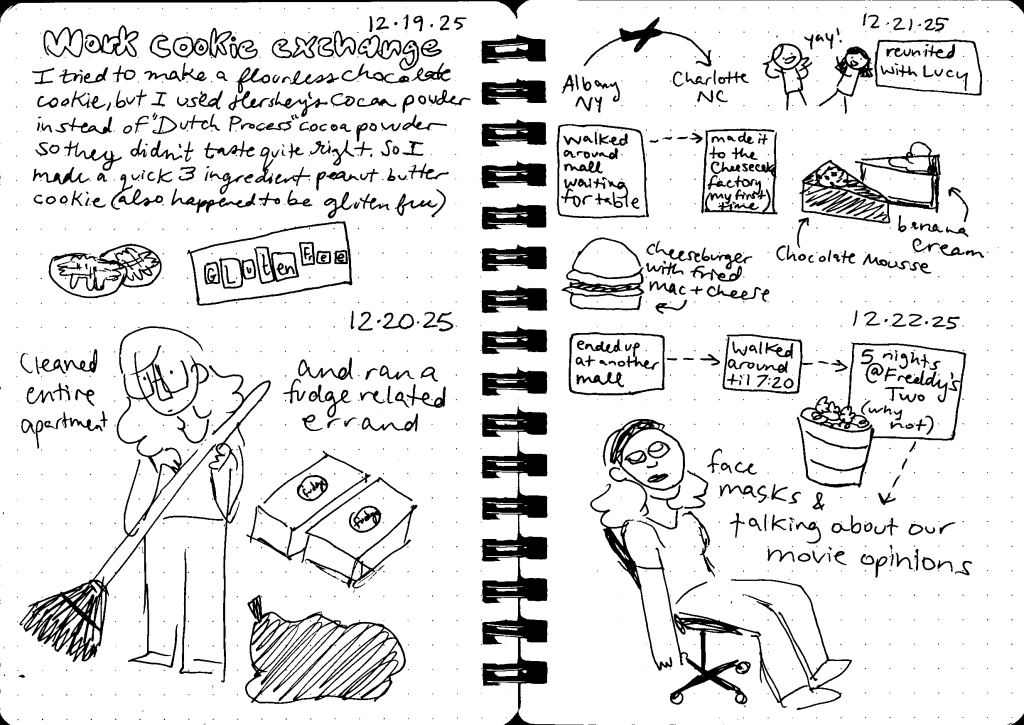 12.19.25
Work cookie exchange
I tried to make a flourless chocolate
cookie, but I used Hershey's cocoa powder
instead of "Dutch Process" cocoa powder
so they didn't taste quite right. So I
made a quick 3 ingredient peanut butter
cookie (also happened to be gluten free)
GLuten Free
12.20.25
Cleaned
entire
apartment
and ran a
fudge related
errand
fudge
fudge
12.21.25
Albany
NY
Charlotte
NC
yay!
reunited
with Lucy
walked
around
mall
waiting
for table
made it
to the
Cheesecake
factory
(my first
time)
Chocolate Mousse
banana
cream
cheeseburger
with fried
mac + cheese
12.22.25
ended up
at another
mall
walked
around
til 7:20
5 nights
@ Freddy's
Two
(why
not)
face
masks &
talking about our
movie opinions